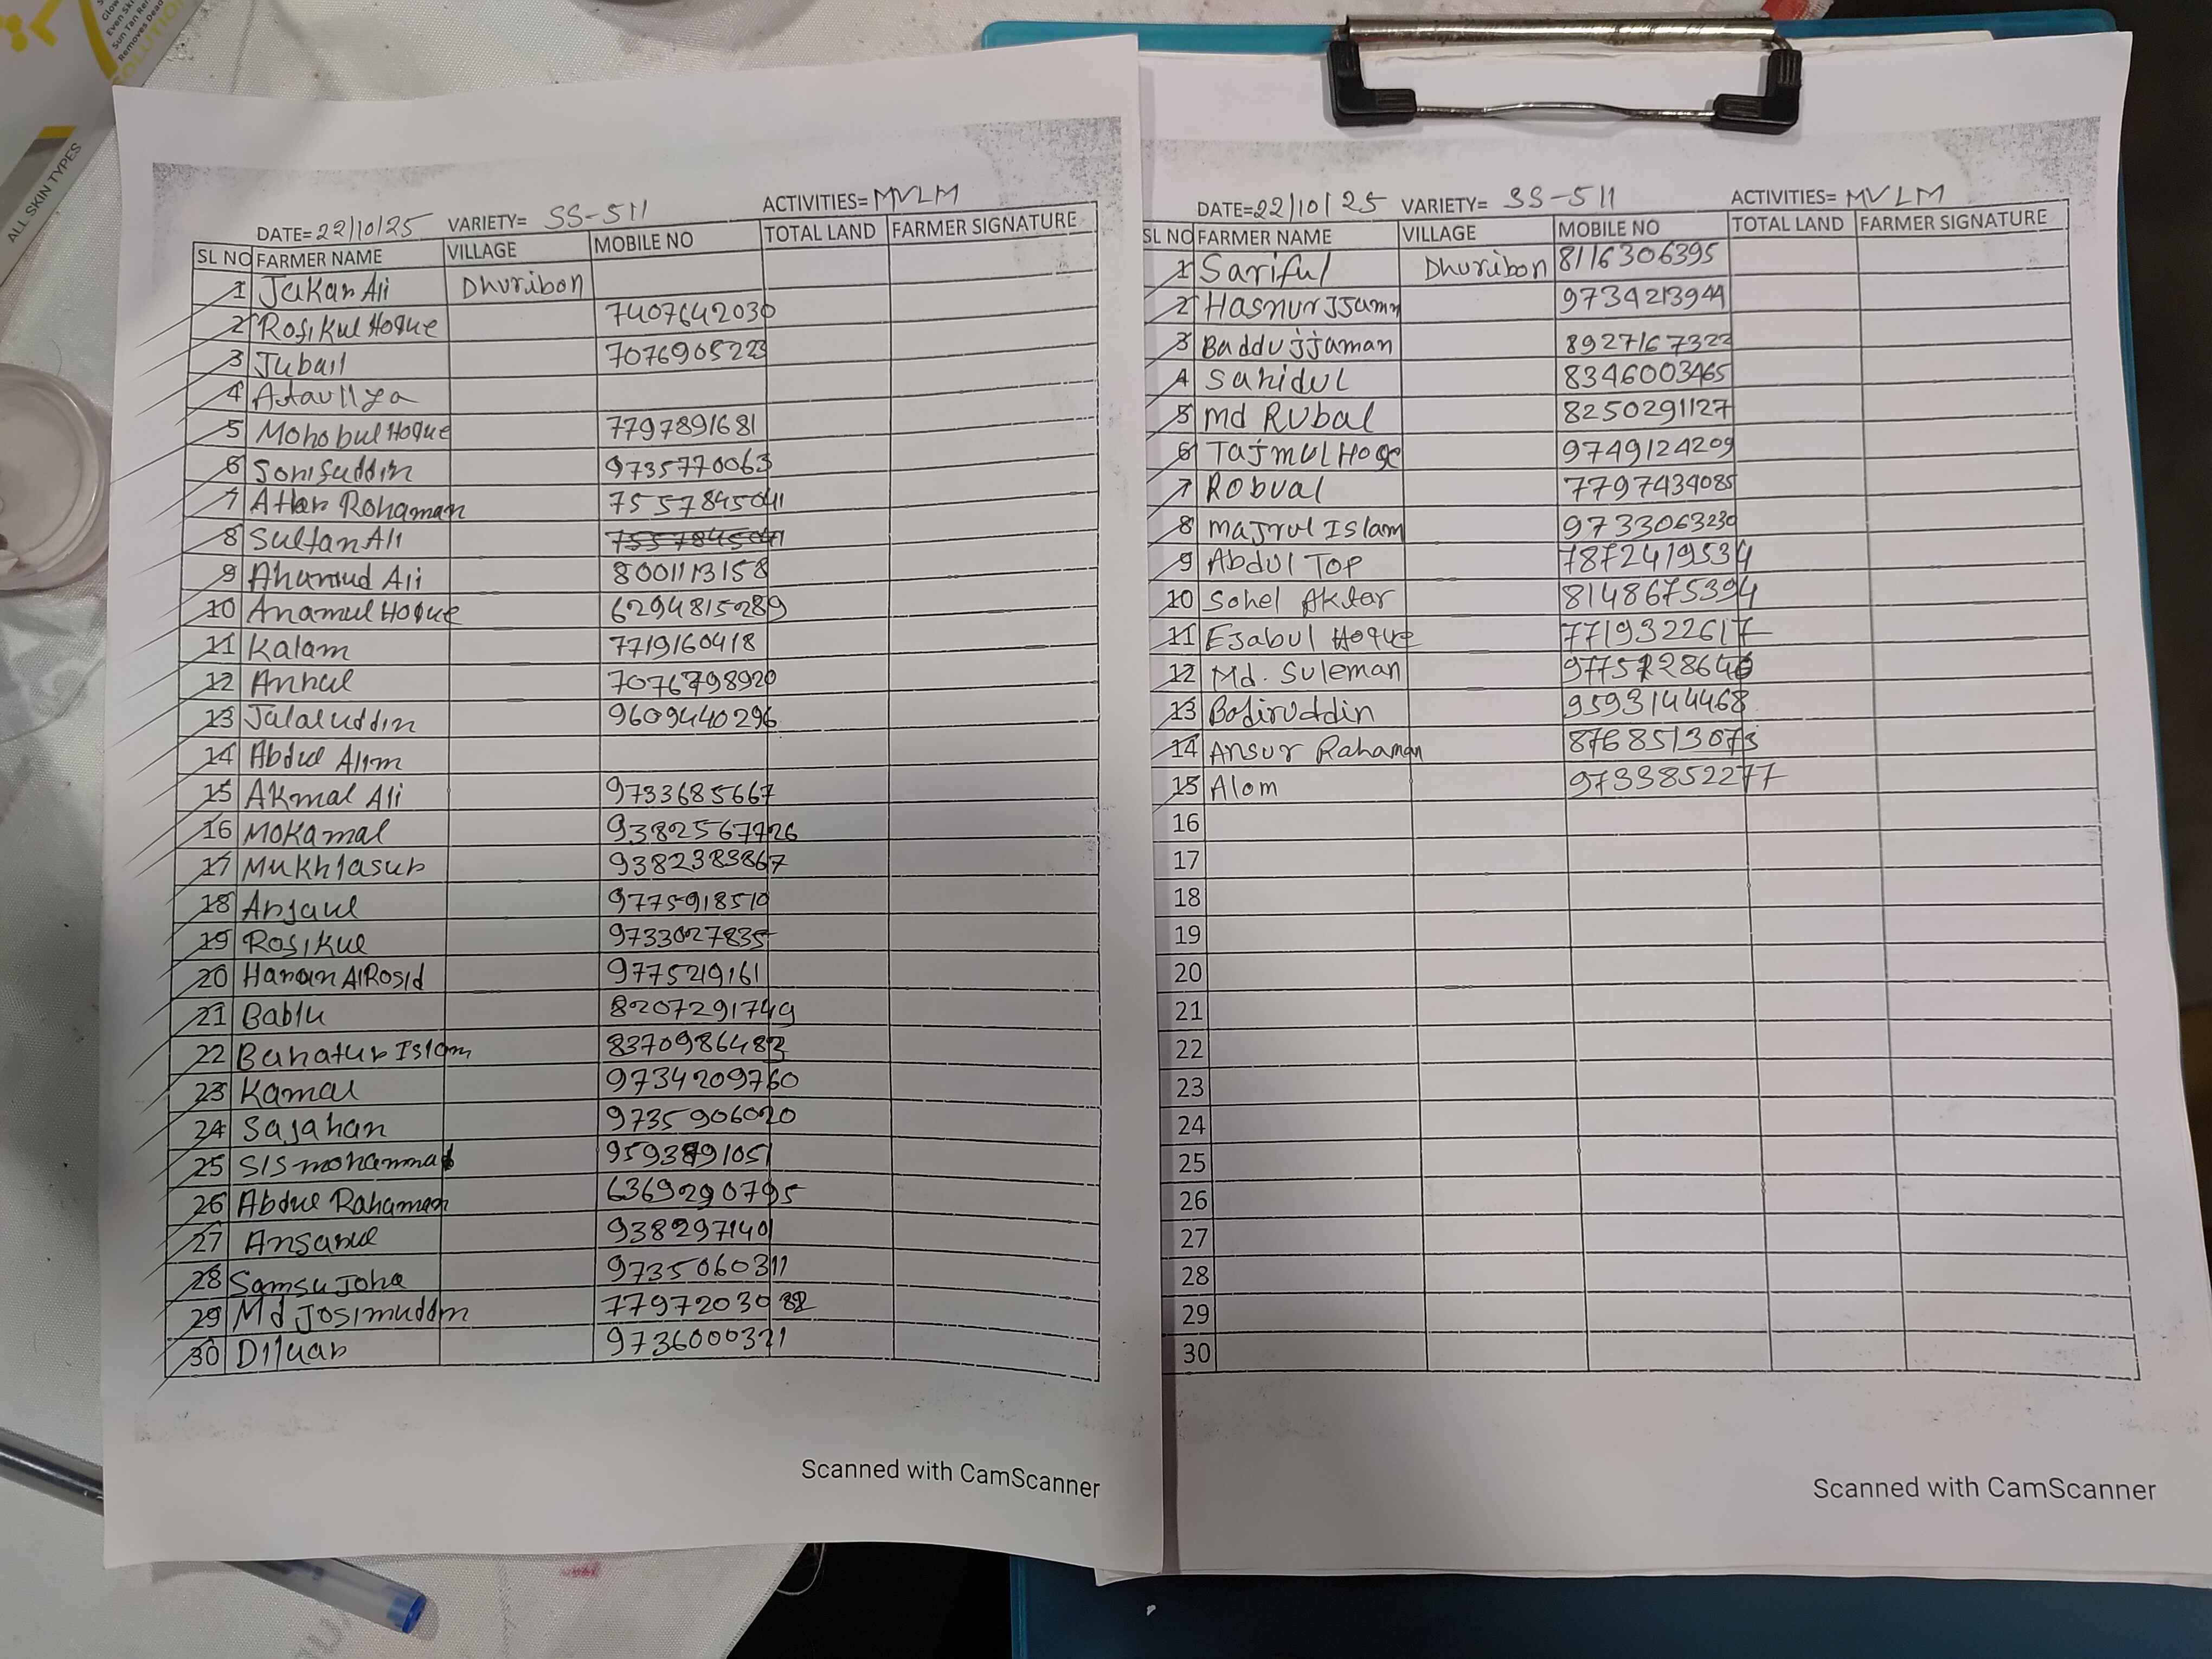 Glow
Even Ski
Sun Tan Re
Removes Dead
SOLUTION
ALL SKIN TYPES
DATE=22/10/25 VARIETY= SS-511 ACTIVITIES=MVLM
SL NO FARMER NAME VILLAGE MOBILE NO TOTAL LAND FARMER SIGNATURE
1 Jakar Ali Dhuribon
2 Rosikul Hoque 7407642030
3 Jubail 7076905223
4 Ataullya
5 Mohobul Hoque 7797891681
6 Sorifuddin 9735770063
7 Atter Rohaman 7557845041
8 Sultan Ali 7557845041
9 Ahamud Ali 8001113158
10 Anamul Hoque 6294815289
11 Kalam 7719160418
12 Anhul 7076798920
13 Jalaluddin 9609440296
14 Abdul Alim
15 Akmal Ali 9733685667
16 Mokamal 9382567726
17 Mukhlasur 9382383867
18 Ansaul 9775918510
19 Rosikul 9733027835
20 Haroun AlRosid 9775219161
21 Bablu 8207291749
22 Bahatur Islam 8370986482
23 Kamal 9734209760
24 Sajahan 9735906020
25 SIS mohammad 9593891051
26 Abdul Rahaman 6369290795
27 Ansarul 938297140
28 Samsu Joha 9735060311
29 Md Josimuddin 7797203082
30 Diluar 9736000321
Scanned with CamScanner
DATE=22/10/25 VARIETY= SS-511 ACTIVITIES= MVLM
SL NO FARMER NAME VILLAGE MOBILE NO TOTAL LAND FARMER SIGNATURE
1 Sariful Dhuribon 8116306395
2 Hasnurjjamn 9734213944
3 Baddujjaman 8927167322
4 Sahidul 8346003465
5 md Rubal 8250291127
6 Tajmul Hoqe 9749124209
7 Robual 7797434085
8 majrul Islam 9733063230
9 Abdul Top 7872419534
10 Sohel Aktar 8148675394
11 Ejabul Hoque 7719322617
12 Md. Suleman 9775728646
13 Bodiruddin 9593144468
14 Ansur Rahaman 8768513073
15 Alom 9733852277
16
17
18
19
20
21
22
23
24
25
26
27
28
29
30
Scanned with CamScanner